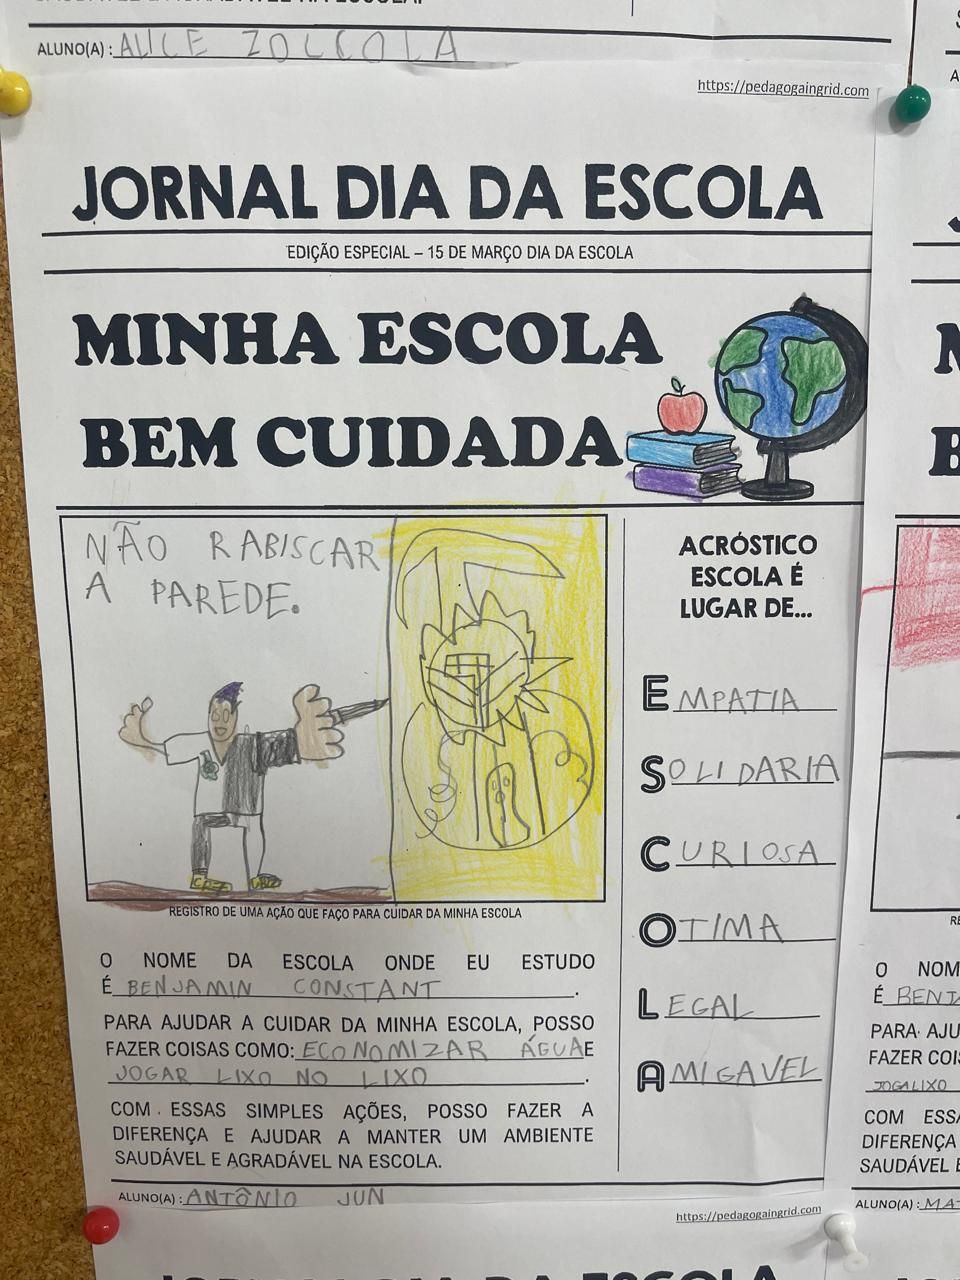 ALUNO(A): ALICE ZOLCOLA
https://pedagogaingrid.com
JORNAL DIA DA ESCOLA
EDIÇÃO ESPECIAL – 15 DE MARÇO DIA DA ESCOLA
MINHA ESCOLA
BEM CUIDADA
NÃO RABISCAR
A PAREDE.
REGISTRO DE UMA AÇÃO QUE FAÇO PARA CUIDAR DA MINHA ESCOLA
O NOME DA ESCOLA ONDE EU ESTUDO
É BENJAMIN CONSTANT.
PARA AJUDAR A CUIDAR DA MINHA ESCOLA, POSSO
FAZER COISAS COMO: ECONOMIZAR ÁGUA E
JOGAR LIXO NO LIXO.
COM ESSAS SIMPLES AÇÕES, POSSO FAZER A
DIFERENÇA E AJUDAR A MANTER UM AMBIENTE
SAUDÁVEL E AGRADÁVEL NA ESCOLA.
ACRÓSTICO
ESCOLA É
LUGAR DE...
EMPATIA
SOLIDARIA
CURIOSA
OTIMA
LEGAL
AMIGAVEL
ALUNO(A): ANTÔNIO JUN
https://pedagogaingrid.com
JORNAL DIA DA ESCOLA
O NOM
É BENJA
PARA AJU
FAZER COIS
JOGALIXO
COM ESSA
DIFERENÇA
SAUDÁVEL E
ALUNO(A): MAT